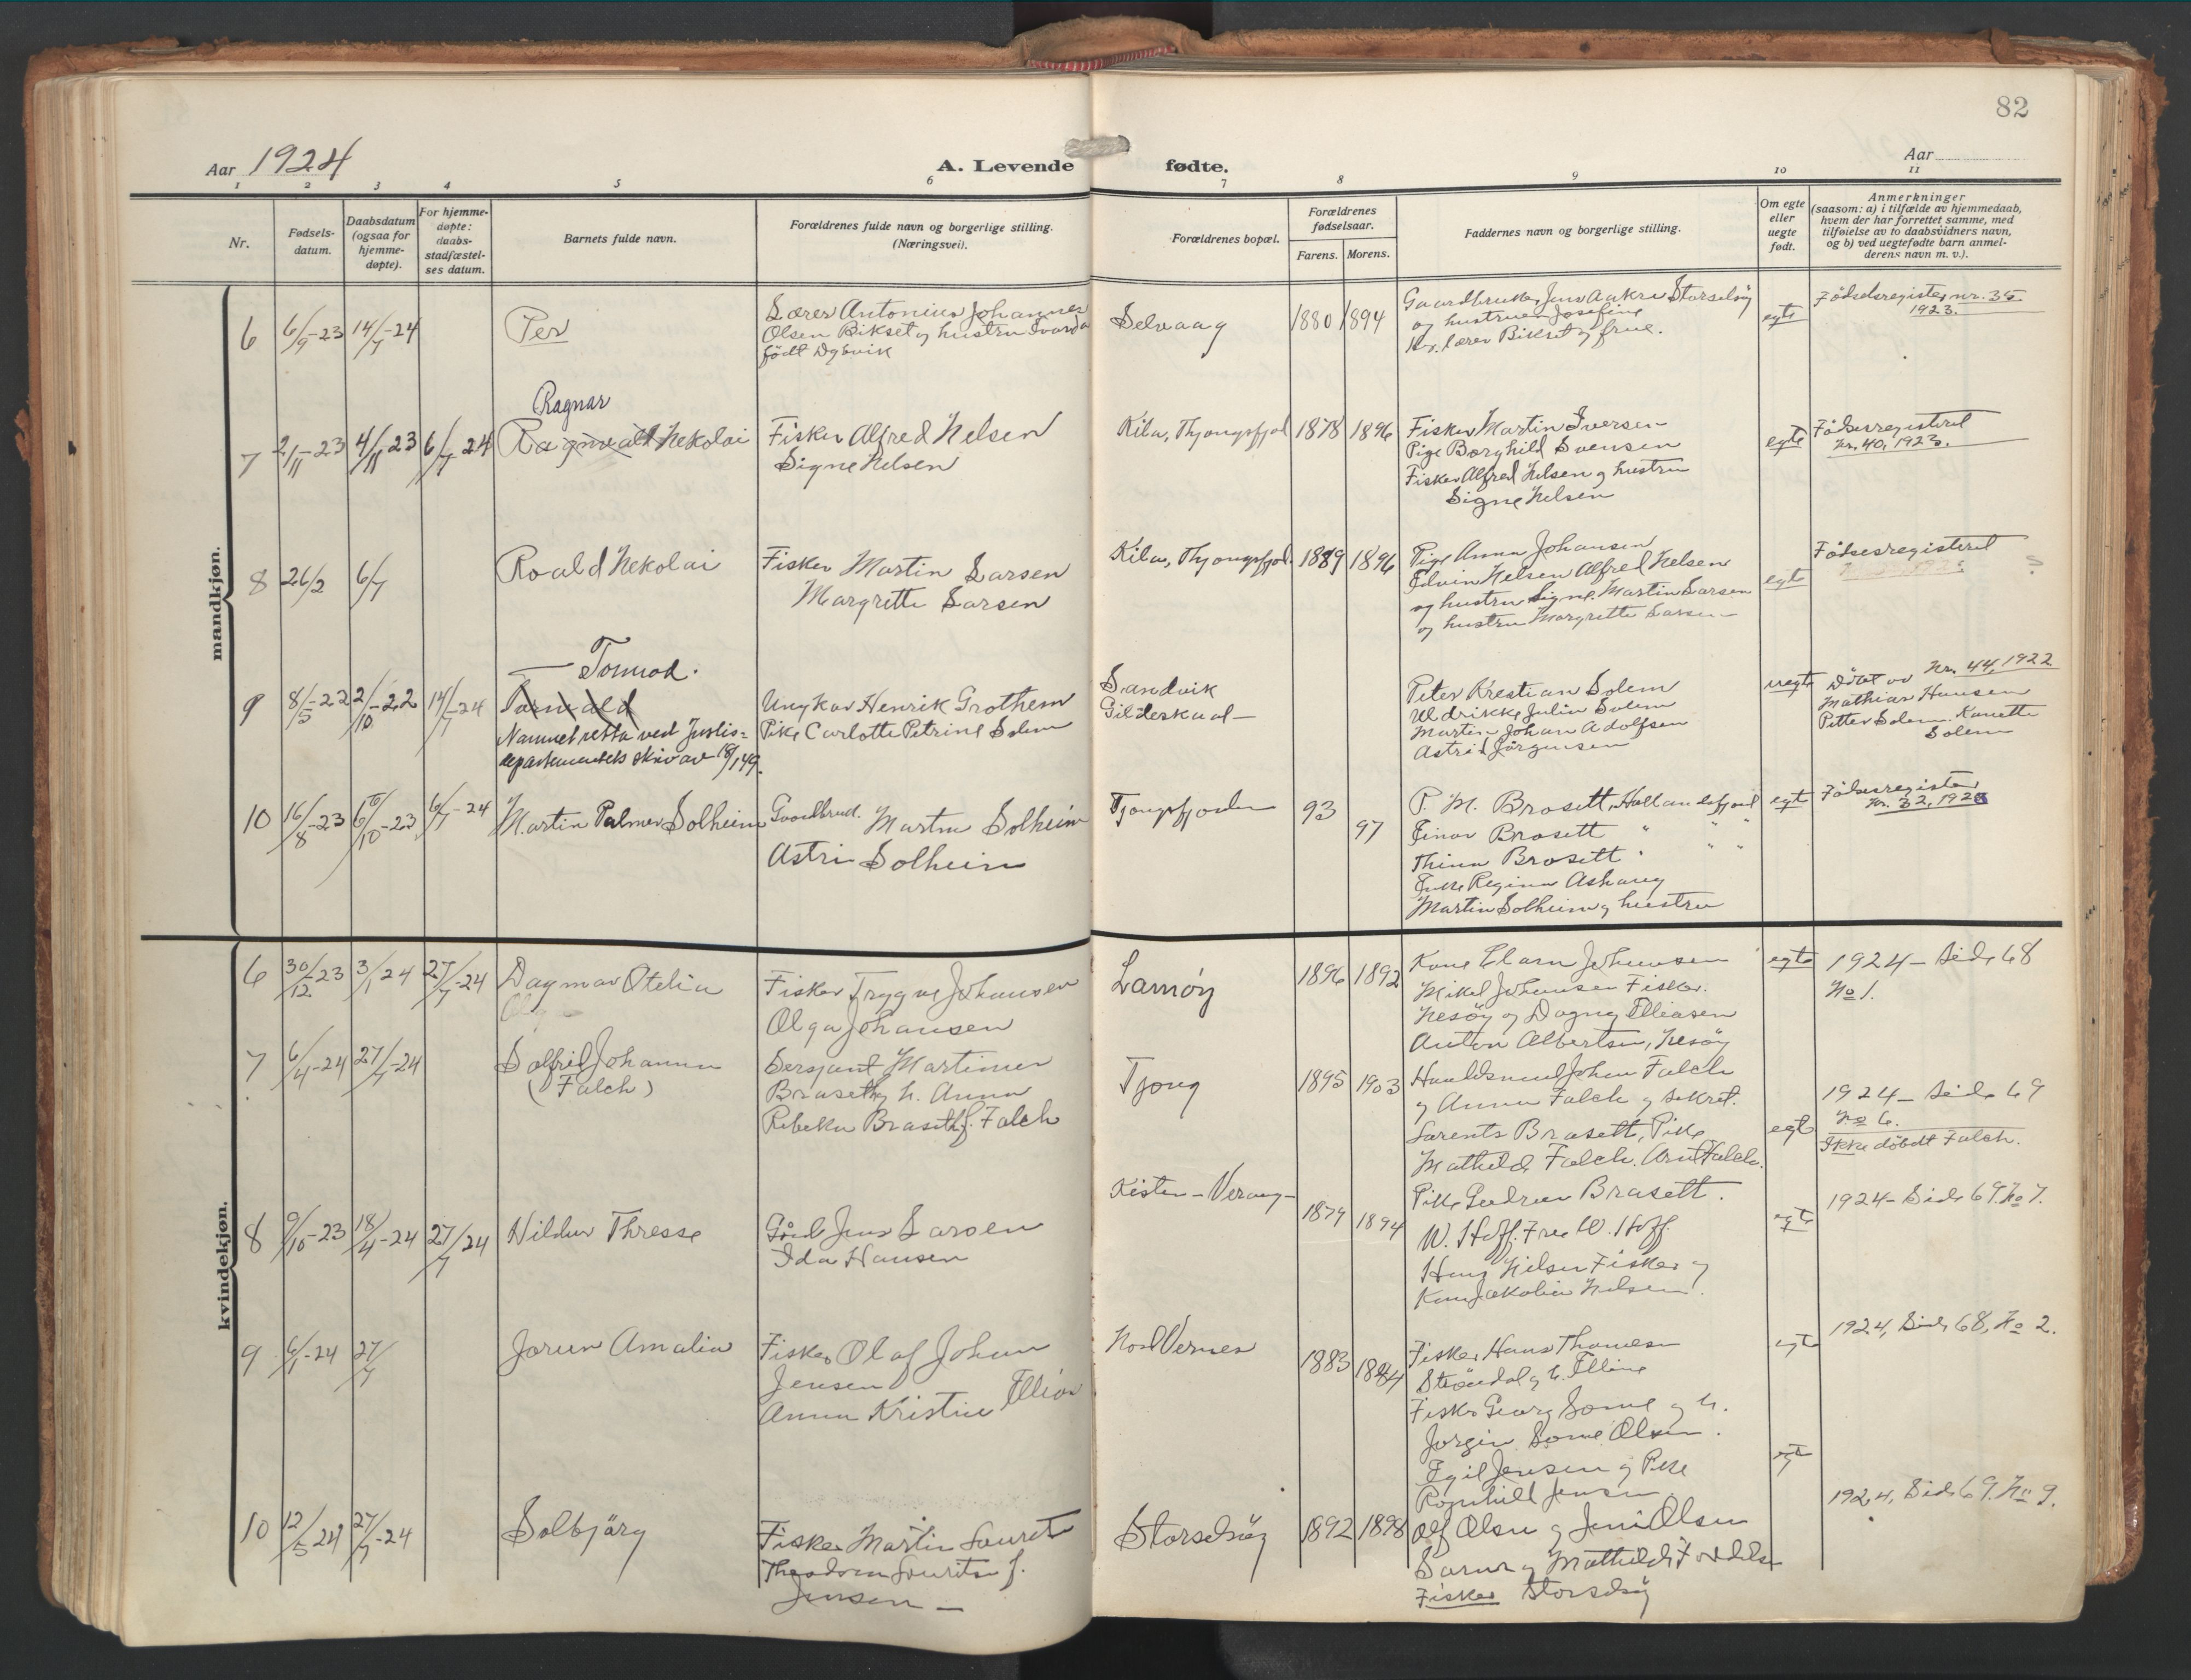 82
Aar 1924
A. Levende fødte.
Aar
1 2 3 4 5 6 7 8 9 10 11
Nr.
Fødsels-
datum.
Daabsdatum
(ogsaa for
hjemme-
døpte).
For hjemme-
døpte:
daabs-
stadfæstel-
ses datum.
Barnets fulde navn.
Forældrenes fulde navn og borgerlige stilling.
(Næringsvei).
Forældrenes bopæl.
Forældrenes
fødselsaar.
Farens. Morens.
Faddernes navn og borgerlige stilling.
Om egte
eller
uegte
født.
Anmerkninger
(saasom: a) i tilfælde av hjemmedaab,
hvem der har forrettet samme, med
tilføielse av to daabsvidners navn,
og b) ved uegtefødte barn anmel-
derens navn m. v.).
mandkjøn.
6 6/9-23 14/7-24
Per
Lærer Antonius Johannes
Olsen Bikset og hustru
født Dybvik
Selvaag
1880 1894
Gaardbruker Jens Aakre Storselsøy
og hustruen Josefine
Hr. lærer Bikset og frue.
egte
Fødselsregister nr. 35
1923.
7 2/11-23 4/11 23 6/7 24
Ragnar
Ragnvald Nekolai
Fisker Alfred Nelsen
Signe Nelsen
Kila, Thjongsfjord
1878 1896
Fisker Martin Iversen
Pige Borghild Svensen
Fisker Alfred Nelsen og hustru
Signe Nelsen
egte
Fødselsregisteret
Nr. 40, 1923.
8 26/2 6/7
Roald Nekolai
Fisker Martin Larsen
Margrette Larsen
Kila, Thjongsfjord
1889 1896
Pige Anna Johansen
Edvin Nelsen Alfred Nelsen
og hustru Signe. Martin Larsen
og hustru Margrette Larsen
egte
Fødselsregisteret
9 8/5-22 2/10-22 14/7-24
Tormod.
Namnet retta ved Justis-
departementets skriv av 18/1 49.
Ungkar Henrik Grothem
Pike Carlotte Petrine Solem
Sandvik
Gilderskaal
Peter Krestian Solem
Uldrikke Julie Solem
Martin Johan Adolfsen
Astrid Jørgensen
uegte
Døbt av Nr. 44, 1922
Mathias Hansen
Petter Solem. Kanette
Solem
10 16/8-23 6/10-23 6/7-24
Martin Palmer Solheim
Gaardbruk. Martin Solheim
Astri Solheim
Tjongsfjorden
93 97
P. M. Brasett, Hallandsfjord
Einar Brasett " " "
Thina Brasett " " "
Enke Regina Ashaug
Martin Solheim og hustru
egte
Fødselsregister
Nr. 32, 1923
kvindekjøn.
6 30/12-23 3/1 24 27/7-24
Dagmar Otelia
Fisker Trygve Johansen
Olga Johansen
Lamøy
1896 1892
Kone Clara Johansen
Mikal Johansen Fisker.
Nesøy og Dagny Elliasen
Anton Albertsen, Nesøy
egte
1924 – Side 68
No 1.
7 6/4-24 27/7-24
Solfrid Johanna
(Falch)
Sersjant Martinus
Braseth og h. Anna
Rebekka Braseth f. Falch
Tjong
1895 1903
Handelsmand Johan Falch
og Anna Falch og sekret.
Larents Brasett, Pike
Mathilde Falch. Arnt Falch.
Pike Gudrun Brasett.
egte
1924 – Side 69
No 6.
Ikke døbdt Falch.
8 9/10-23 18/4-24 27/7 24
Hildur Thresse
Gårdb Jens Larsen
Ida Hansen
Kisten – Veraag –
1879 1894
W. Hoff. Frue W. Hoff.
Hans Nilsen Fisker og
Kone Jakobia Nilsen.
egte
1924 – Side 69. No 7.
9 6/1-24 27/7
Jorun Amalia
Fisker Olaf Johan
Jensen
Anna Kristine
Nord Vernes
1883 1884
Fisker Hans Thomesen
Strøndal og h. Elline
Fisker Georg Sørme og h.
Jorgine Sørme Olsen.
Egil Jensen og Pike
Ragnhild Jensen
egte
1924, Side 68, No 2.
10 12/5 24 27/7-24
Solbjørg
Fisker Martin Laurets
Theodora Lauritsen f.
Jensen –
Storselsøy
1892 1898
Olf Olsen og Jenni Olsen
Mathilde
Fisker Storselsøy
egte
1924, Side 69. No 9.